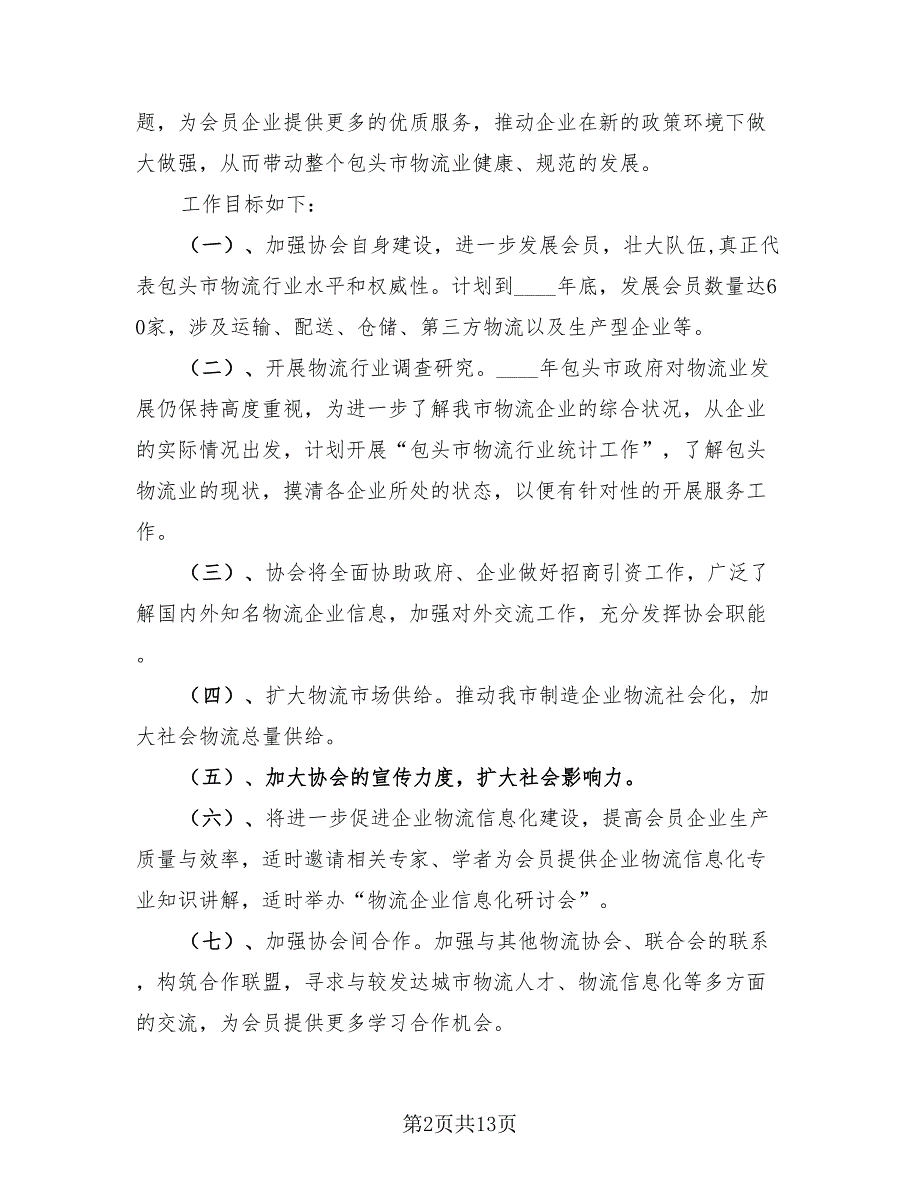 题，为会员企业提供更多的优质服务，推动企业在新的政策环境下做
大做强，从而带动整个包头市物流业健康、规范的发展。
工作目标如下：
（一）、加强协会自身建设，进一步发展会员，壮大队伍,真正代
表包头市物流行业水平和权威性。计划到____年底，发展会员数量达6
0家，涉及运输、配送、仓储、第三方物流以及生产型企业等。
（二）、开展物流行业调查研究。____年包头市政府对物流业发
展仍保持高度重视，为进一步了解我市物流企业的综合状况，从企业
的实际情况出发，计划开展“包头市物流行业统计工作”，了解包头
物流业的现状，摸清各企业所处的状态，以便有针对性的开展服务工
作。
（三）、协会将全面协助政府、企业做好招商引资工作，广泛了
解国内外知名物流企业信息，加强对外交流工作，充分发挥协会职能
。
（四）、扩大物流市场供给。推动我市制造企业物流社会化，加
大社会物流总量供给。
（五）、加大协会的宣传力度，扩大社会影响力。
（六）、将进一步促进企业物流信息化建设，提高会员企业生产
质量与效率，适时邀请相关专家、学者为会员提供企业物流信息化专
业知识讲解，适时举办“物流企业信息化研讨会”。
（七）、加强协会间合作。加强与其他物流协会、联合会的联系
，构筑合作联盟，寻求与较发达城市物流人才、物流信息化等多方面
的交流，为会员提供更多学习合作机会。
第2页共13页